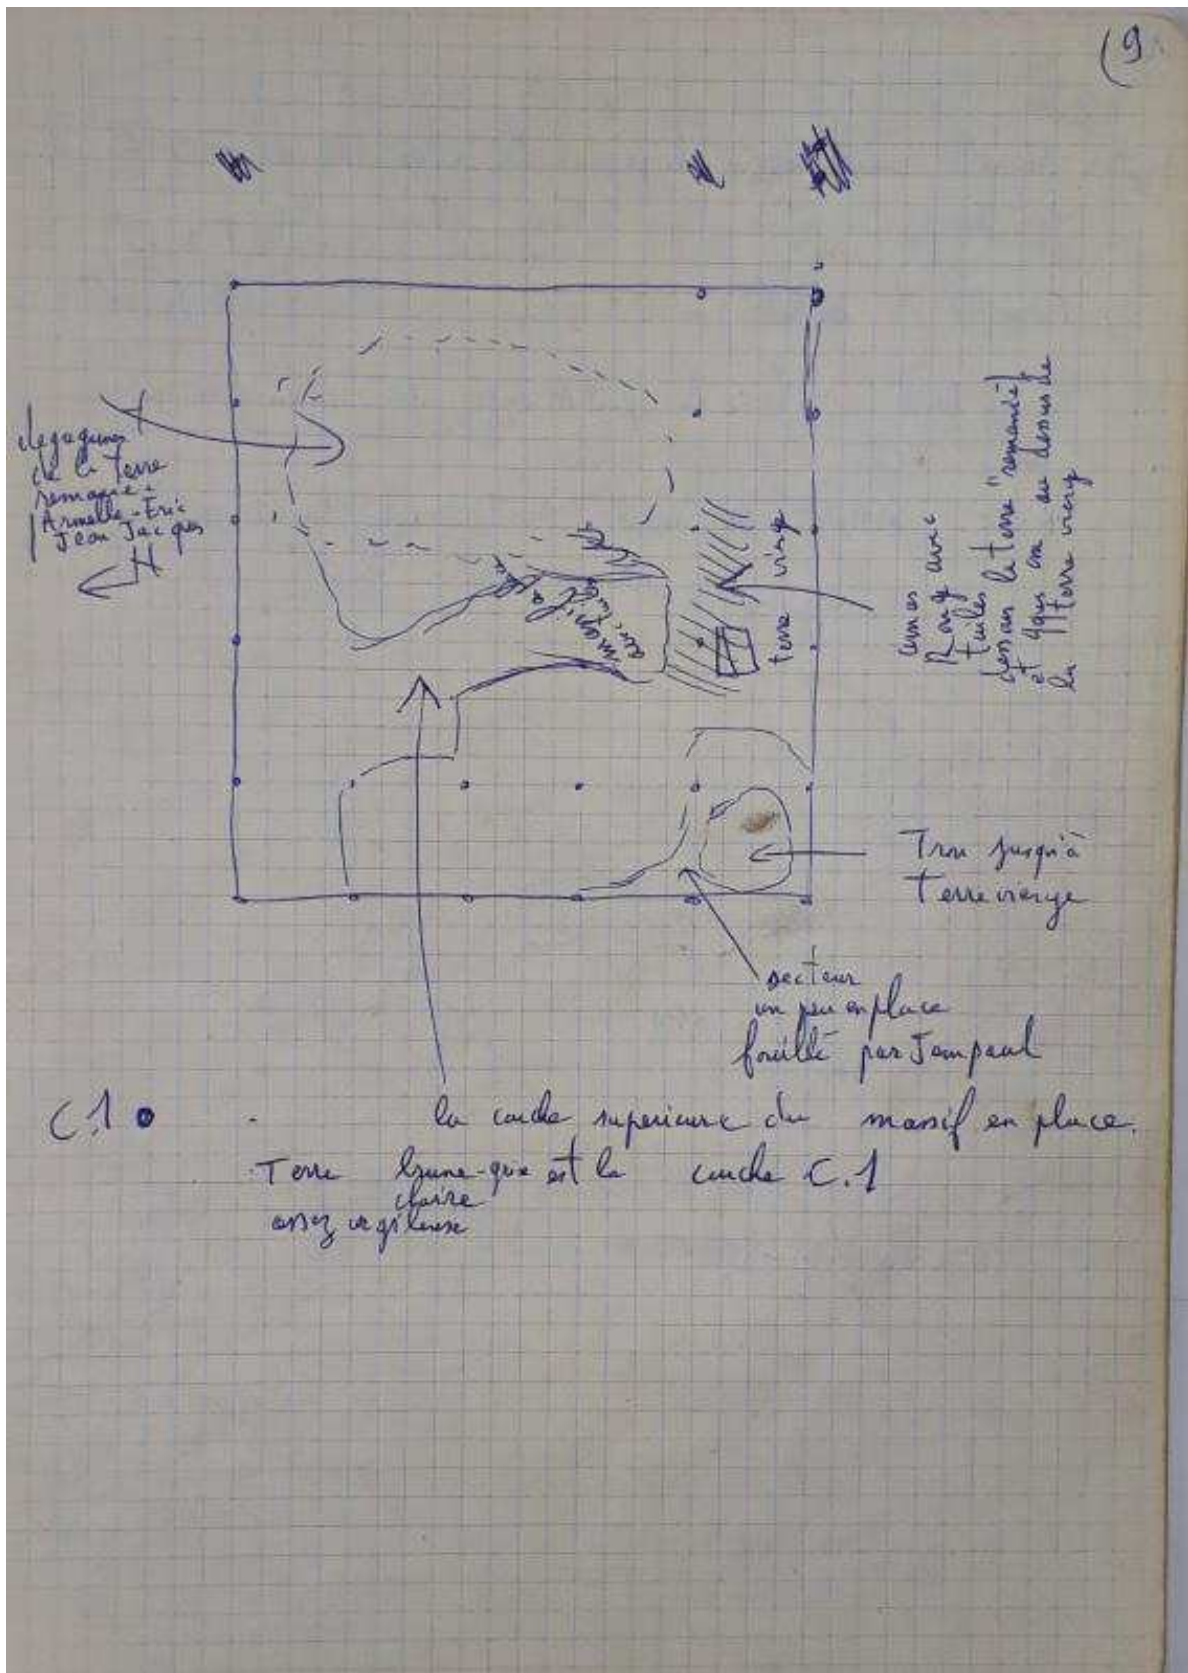 (9
degagement
de la terre
remaniée
Armelle - Eric
Jean Jacques
N
terre vierge
massif
avec
amas
Rouge avec
tuiles
dessous la terre "remanié"
et au dessus de
la terre vierg
Trou jusqu'à
Terre vierge
secteur
un peu en place
fouillé par Jean paul
C.1 la couche superieure du massif en place.
Terre brune-grise est la couche C.1
claire
assez argileuse